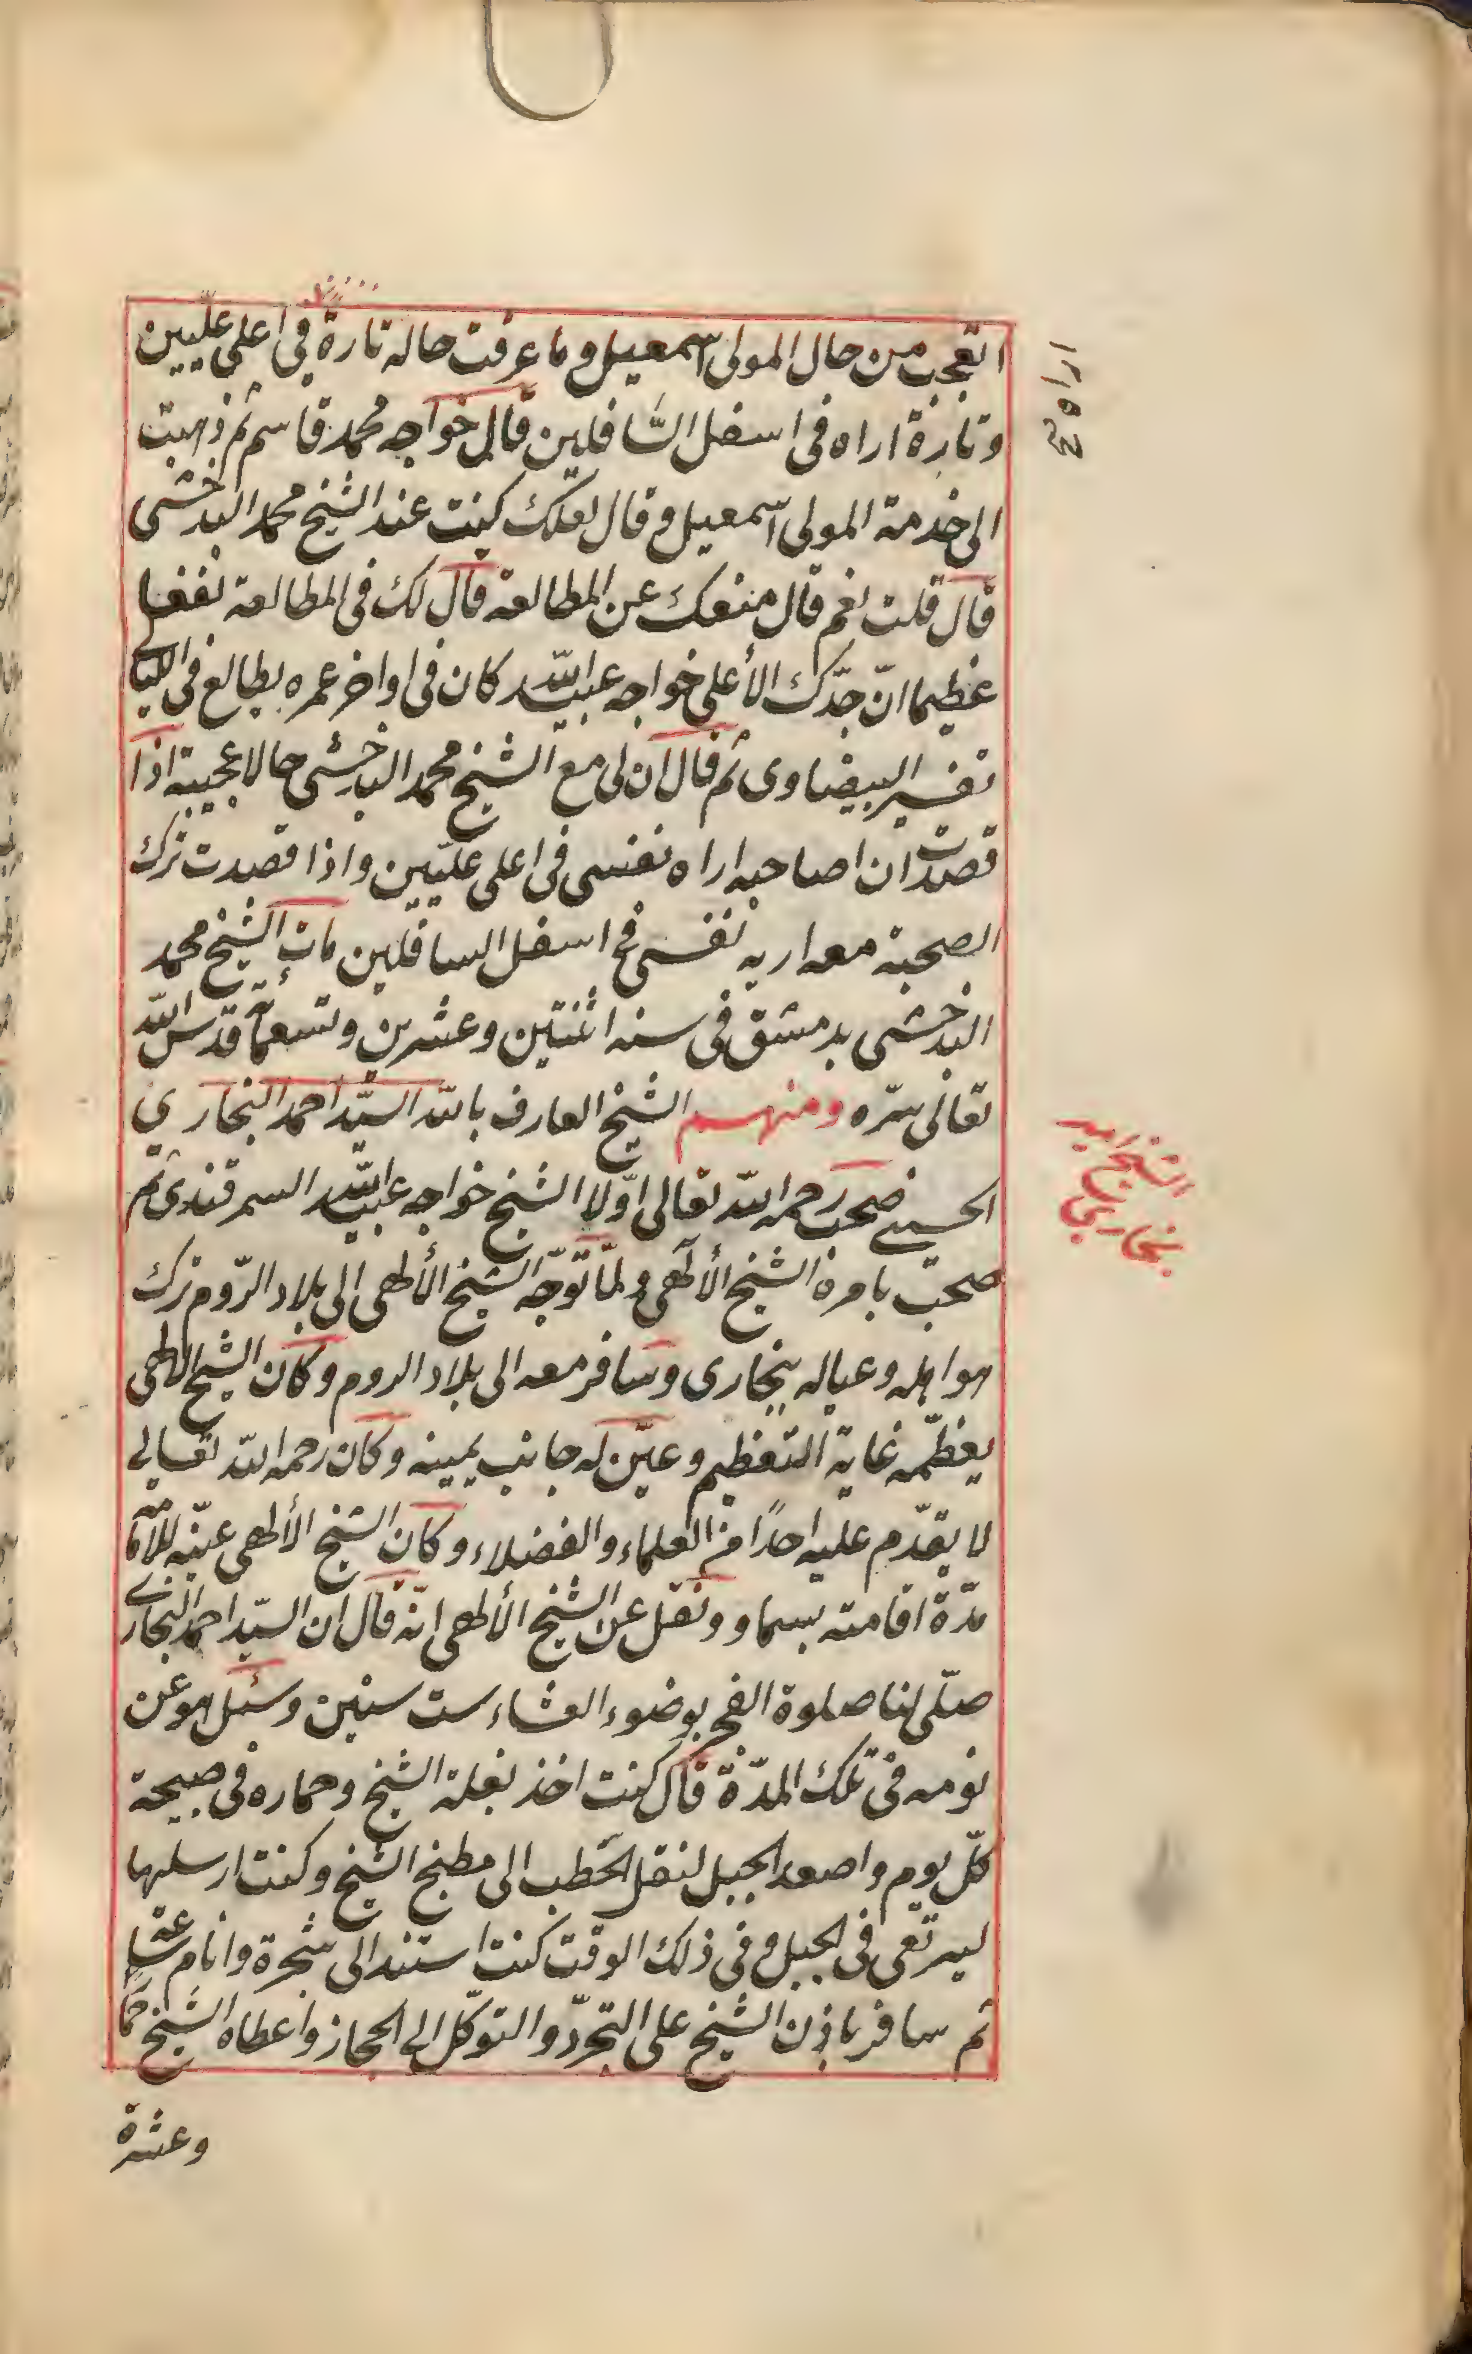 اتعجب من حال المولى اسمعيل وما عرفت حاله تارة في اعلى عليين
وتارة اراه في اسفل السافلين قال خواجه محمد قاسم ثم ذهبت
الى خدمة المولى اسمعيل وقال لعلك كنت عند الشيخ محمد البدخشى
قال قلت نعم قال منعك عن المطالعة قال لك في المطالعة نفعا
عظيما انّ جدّك الأعلى خواجه عبيد الله كان في اواخر عمره يطالع في الليالي
تفسير البيضاوى ثم قال ان لى مع الشيخ محمد البدخشى حالا عجيبة اذا
قصدت ان اصاحبه اراه نفسى في اعلى عليّين واذا قصدت ترك
الصحبة معه اريه نفسى في اسفل السافلين مات الشيخ محمد
البدخشى بدمشق في سنه اثنتين وعشرين وتسعمائة قدّس الله
تعالى سرّه ومنهم الشيخ العارف بالله السيّد احمد البخاري
الحسينى صحب رحمه الله تعالى اوّلا الشيخ خواجه عبيد الله السمرقندى ثم
صحب بامره الشيخ الألهى ولمّا توجّه الشيخ الألهى الى بلاد الرّوم ترك
هو اهله وعياله ببخارى وسافر معه الى بلاد الروم وكان الشيخ الالهى
يعظّمه غاية التعظيم وعيّن له جانب يمينه وكان رحمه الله تعالى
لا يقدّم عليه احدًا من العلماء والفضلاء وكان الشيخ الألهى عيّنه للأمامة
مدّة اقامته بسماو ونقل عن الشيخ الألهى انّه قال ان السيّد احمد البخارى
صلّى لنا صلوة الفجر بوضوء العشاء ست سنين وسئل هو عن
نومه في تلك المدّة قال كنت اخذ بغلة الشيخ وحماره في صبيحة
كلّ يوم واصعد الجبل لنقل الحطب الى مطبخ الشيخ وكنت ارسلها
ليرتعى في الجبل وفى ذلك الوقت كنت استند الى شجرة وانام ساعة
ثم سافر باذن الشيخ على التجرّد والتوكّل الى الحجاز واعطاه الشيخ حمارًا
وعشرة
اراه
الشيخ امير
بخارى